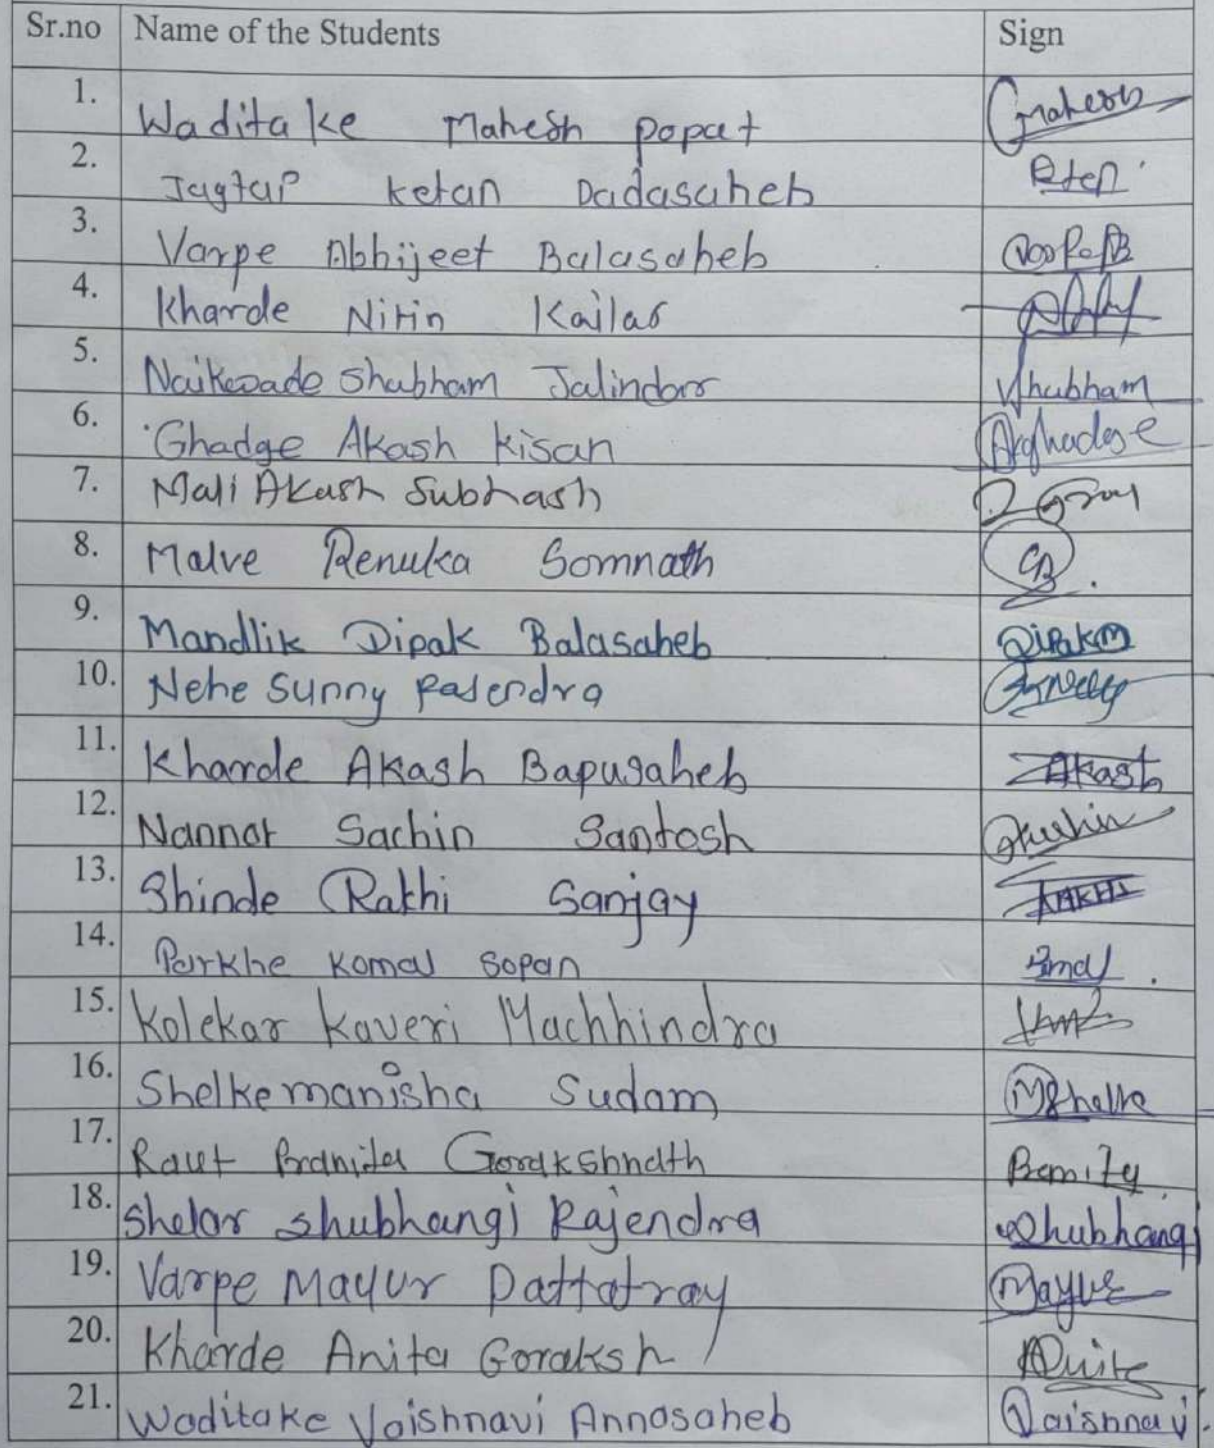 Sr.no Name of the Students Sign
1. Waditake Mahesh Popat Mahesh
2. Jagtap Ketan Dadasaheb
3. Varpe Abhijeet Balasaheb
4. Kharde Nitin Kailas
5. Naikwade Shubham Jalindar Shubham
6. Ghadge Akash Kisan Akghadge
7. Mali Akash Subhash
8. Malve Renuka Somnath
9. Mandlik Dipak Balasaheb Dipakm
10. Nehe Sunny Rajendra
11. Kharde Akash Bapusaheb Akash
12. Nannor Sachin Santosh
13. Shinde Rakhi Sanjay Rakhi
14. Parkhe Komal Sopan
15. Kolekar Kaveri Machhindra
16. Shelke manisha Sudam MShelke
17. Raut Pranita Gorakshnath
18. Shelar Shubhangi Rajendra Shubhangi
19. Varpe Mayur Dattatray Mayur
20. Kharde Anita Goraksh Anita
21. Waditake Vaishnavi Annasaheb Vaishnavi